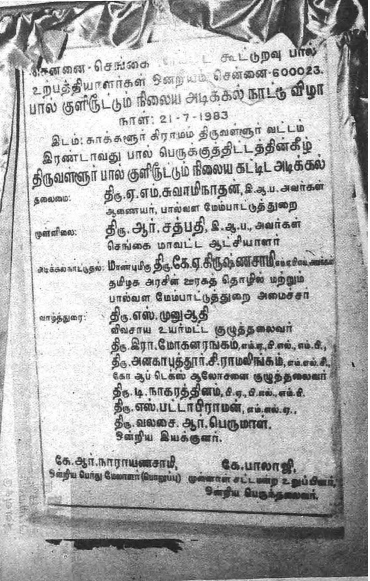 சென்னை-செங்கை கூட்டுறவு பால்
உற்பத்தியாளர்கள் ஒன்றியம் சென்னை-600023.
பால் குளிரூட்டும் நிலைய அடிக்கல் நாட்டு விழா
நாள்: 21-7-1983
இடம்: காக்களூர் கிராமம் திருவள்ளூர் வட்டம்
இரண்டாவது பால் பெருக்குத்திட்டத்தின்கீழ்
திருவள்ளூர் பால் குளிரூட்டும் நிலைய கட்டிட அடிக்கல்
தலைமை: திரு.ஏ.எம்.சுவாமிநாதன், இ.ஆ.ப. அவர்கள்
ஆணையர், பால்வள மேம்பாட்டுத்துறை
முன்னிலை: திரு. ஆர். சத்பதி, இ.ஆ.ப., அவர்கள்
செங்கை மாவட்ட ஆட்சியாளர்
அடிக்கல் நாட்டுதல்: மாண்புமிகு திரு.கே.ஏ.கிருஷ்ணசாமி
தமிழக அரசின் ஊரகத் தொழில் மற்றும்
பால்வள மேம்பாட்டுத்துறை அமைச்சர்
வாழ்த்துரை: திரு.எஸ்.முனுஆதி
விவசாய உயர்மட்ட குழுத்தலைவர்
திரு.இரா.மோகனரங்கம், எம்.ஏ.,பி.எல்., எம்.பி.,
திரு.அனகாபுத்தூர்.சி.ராமலிங்கம், எம்.எல்.சி.,
கோ ஆப் டெக்ஸ் ஆலோசனை குழுத்தலைவர்
திரு. டி.நாகரத்தினம், பி.ஏ., பி.எல்., எம்.பி
திரு.எஸ்.பட்டாபிராமன், எம்.எல்.ஏ.,
திரு.வலசை. ஆர். பெருமாள்.
ஒன்றிய இயக்குனர்.
கே.ஆர்.நாராயணசாமி, கே.பாலாஜி,
ஒன்றிய பொது மேலாளர் (பொறுப்பு) முன்னாள் சட்டமன்ற உறுப்பினர்,
ஒன்றிய பெருந்தலைவர்.